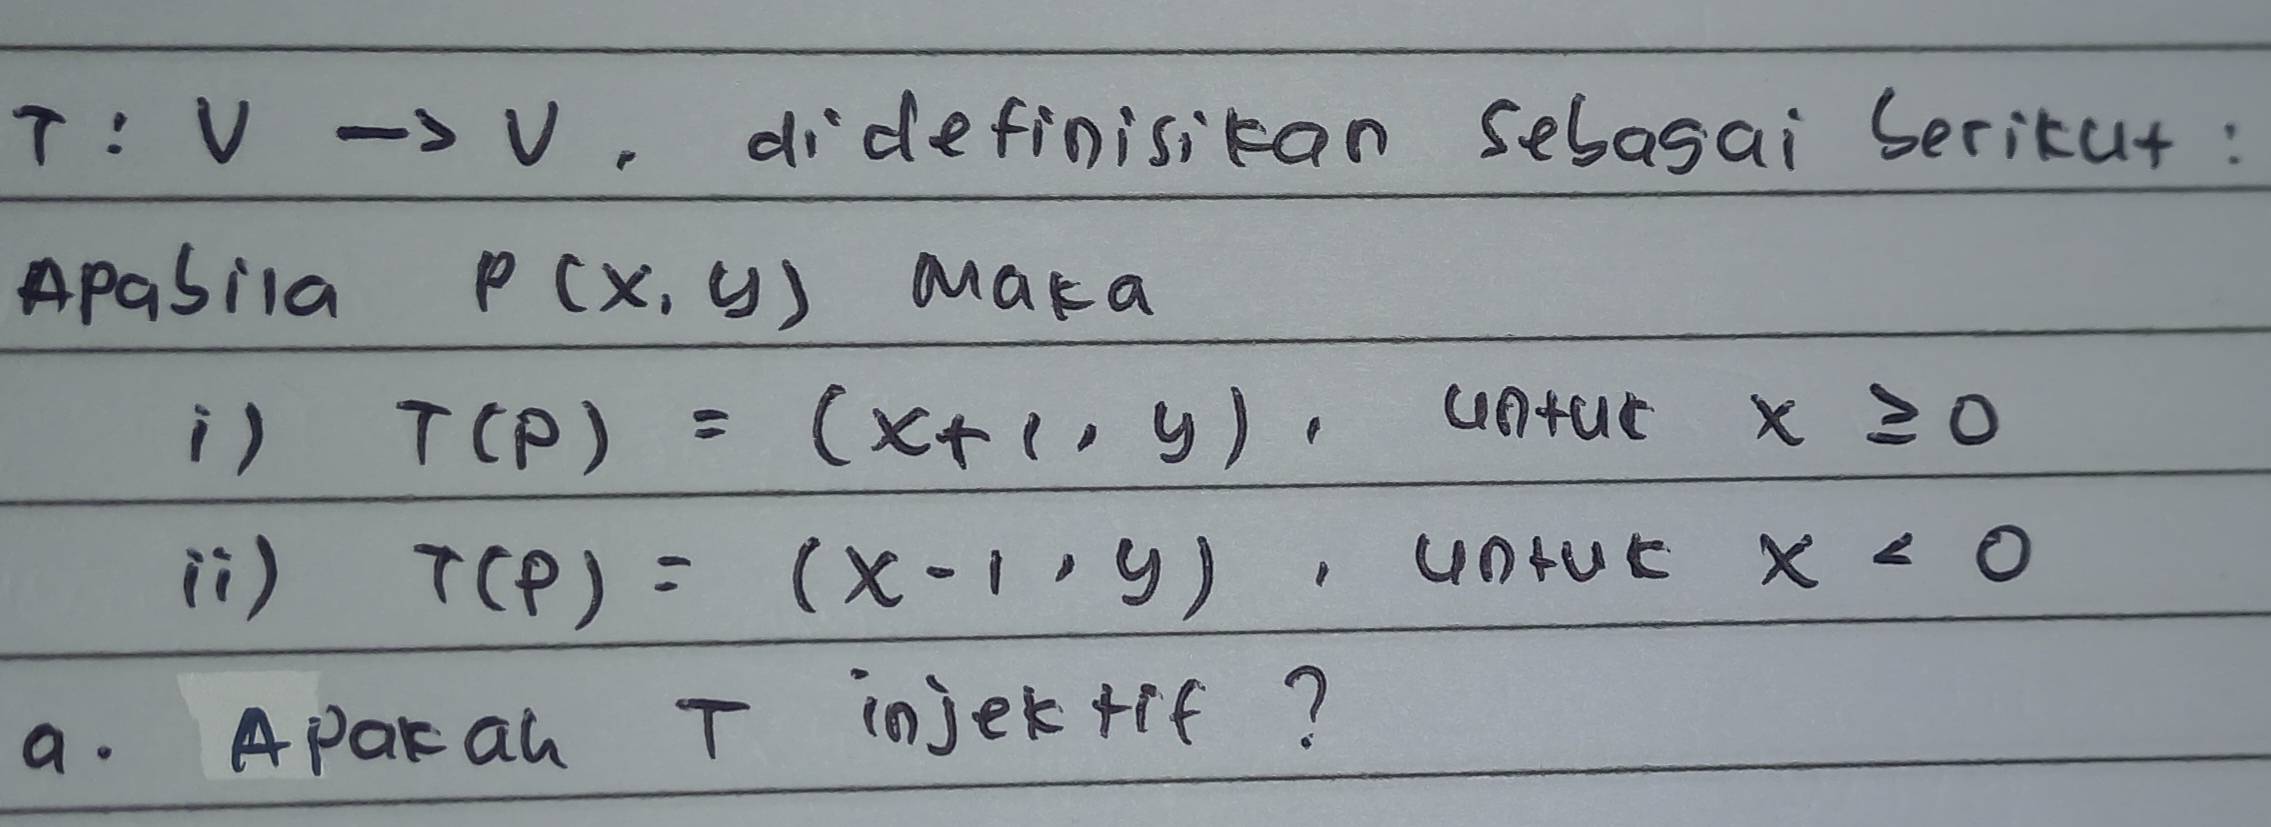 T : V -> V , didefinisikan sebagai berikut :
Apabila P (x, y) maka
i) T(P) = (x+1, y), untuk x ≥ 0
ii) T(P) = (x-1, y), untuk x < 0
a. Apakah T injektif ?